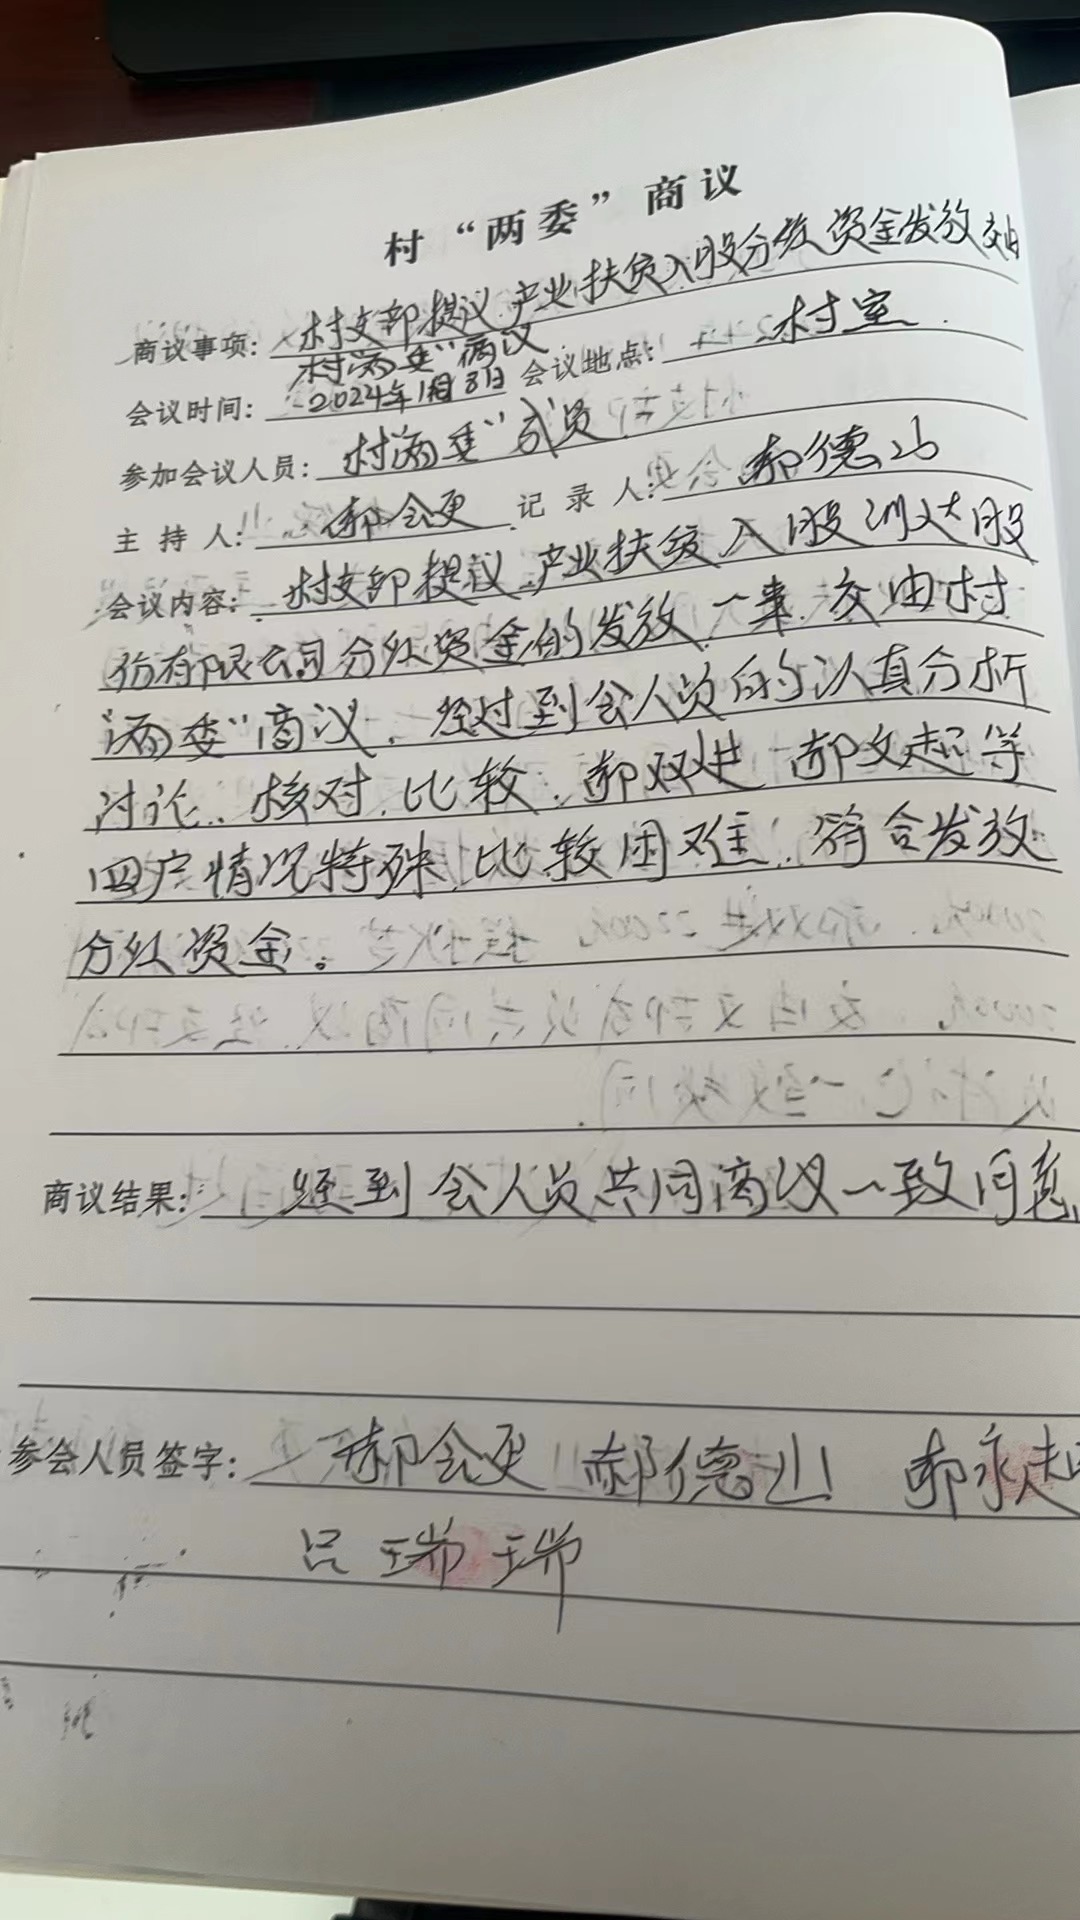 村“两委”商议
商议事项：村支部提议产业扶贫入股分红资金发放交由
村“两委”商议
会议时间：2024年1月8日 会议地点：村室
参加会议人员：村“两委”成员
主持人：郝会更 记录人：郝德山
会议内容：村支部提议产业扶贫入股 股
份有限公司分红资金的发放一事，交由村
“两委”商议，经过到会人员的认真分析
讨论、核对、比较，郝双进 郝文起等
四户情况特殊，比较困难，符合发放
分红资金。
商议结果：经到会人员共同商议一致同意
参会人员签字：郝会更 郝德山 郝永起
吕瑞瑞